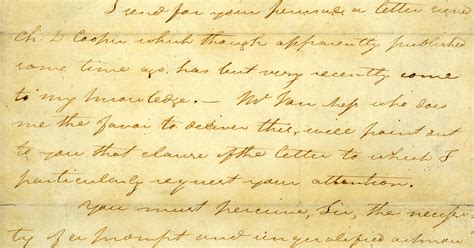 I send for your perusal, a letter signe
Ch: D Cooper which though apparently published
some time ago, has but very recently come
to my knowledge. — Mr Van Ness who does
me the favor to deliver this, will point out
to you that clause of the letter to which I
particularly request your attention.
You must perceive, Sir, the necessi
ty of a prompt and unqualified acknow